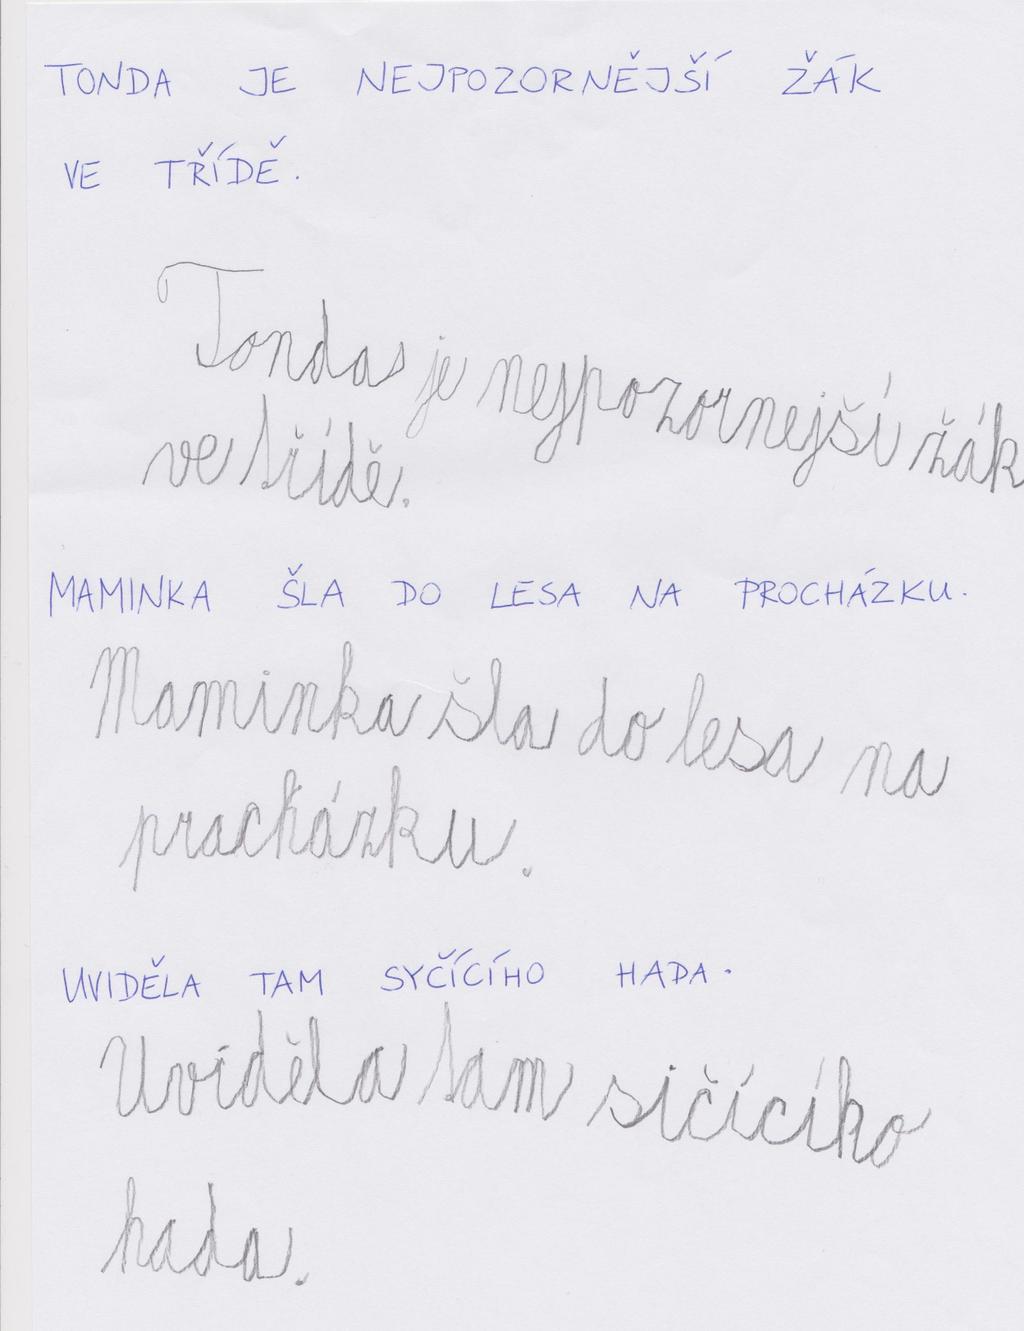 TONDA JE NEJPOZORNĚJŠÍ ŽÁK
VE TŘÍDĚ.
Tonda je nejpozornejší žák
ve třídě.
MAMINKA ŠLA DO LESA NA PROCHÁZKU.
Maminka šla do lesa na
procházku.
UVIDĚLA TAM SYČÍCÍHO HADA.
Uviděla tam sičícího
hada.